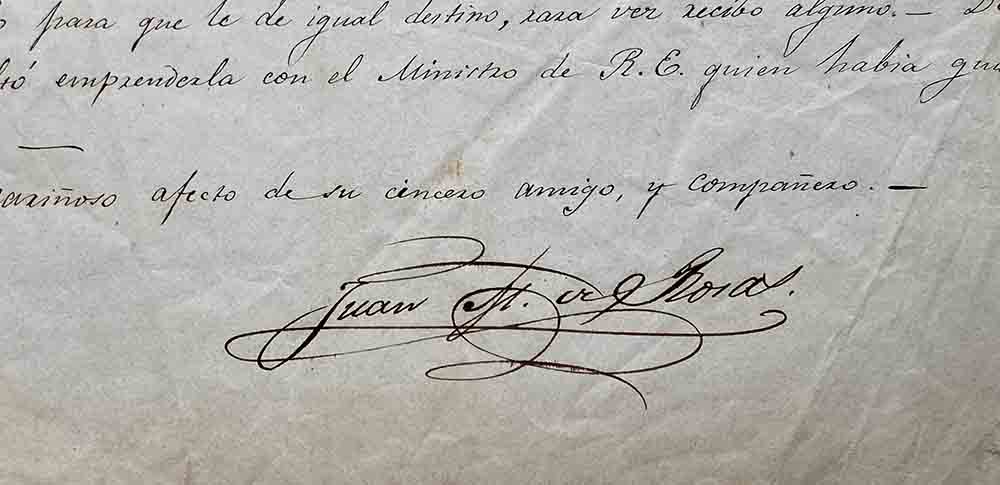 para que le de igual destino, xara ver recibo alguno. —
emprenderla con el Ministro de R.E. quien habia
ariñoso afecto de su cincero amigo, y compañero. —
Juan M. de Rosas.